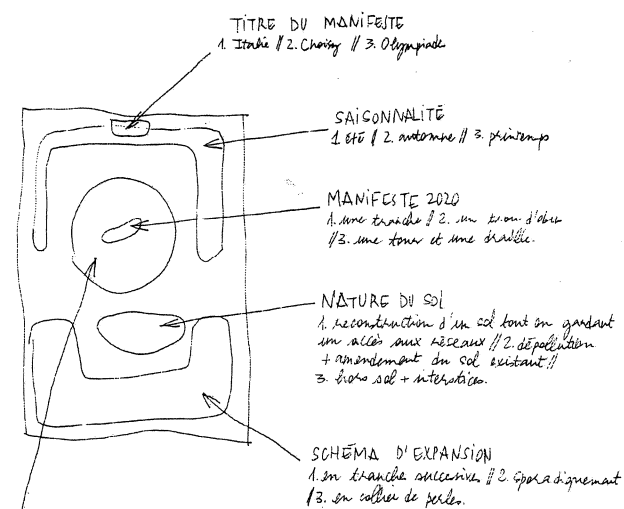 TITRE DU MANIFESTE
1. Italie // 2. Choisy // 3. Olympiade
SAISONNALITÉ
1 été // 2. automne // 3. printemps
MANIFESTE 2020
1. une tranche // 2. un trou d'obu
//3. une tour et une draille.
NATURE DU SOL
1. reconstruction d'un sol tout en gardant
un accès aux réseaux // 2. dépollution
+ amendement du sol existant //
3. hors sol + interstices.
SCHÉMA D'EXPANSION
1. en tranche succesives // 2. sporadiquement
//3. en collier de perles.